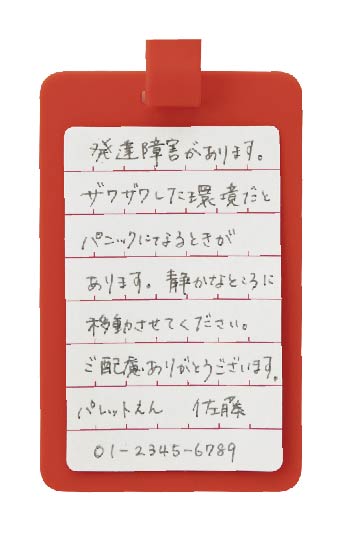 発達障害があります。
ザワザワした環境だと
パニックになるときが
あります。静かなところに
移動させてください。
ご配慮ありがとうございます。
パレットえん 佐藤
01-2345-6789